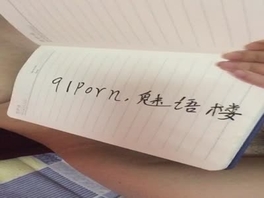 91porn.魅语楼